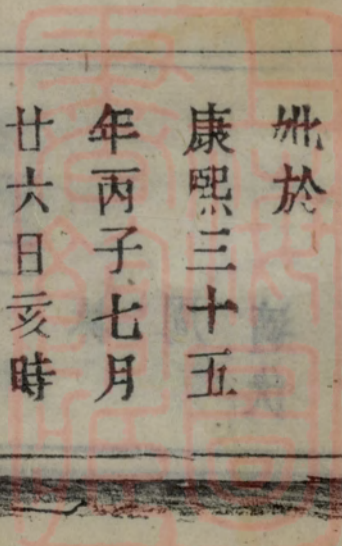 於
康熙三十五
年丙子七月
廿六日亥時